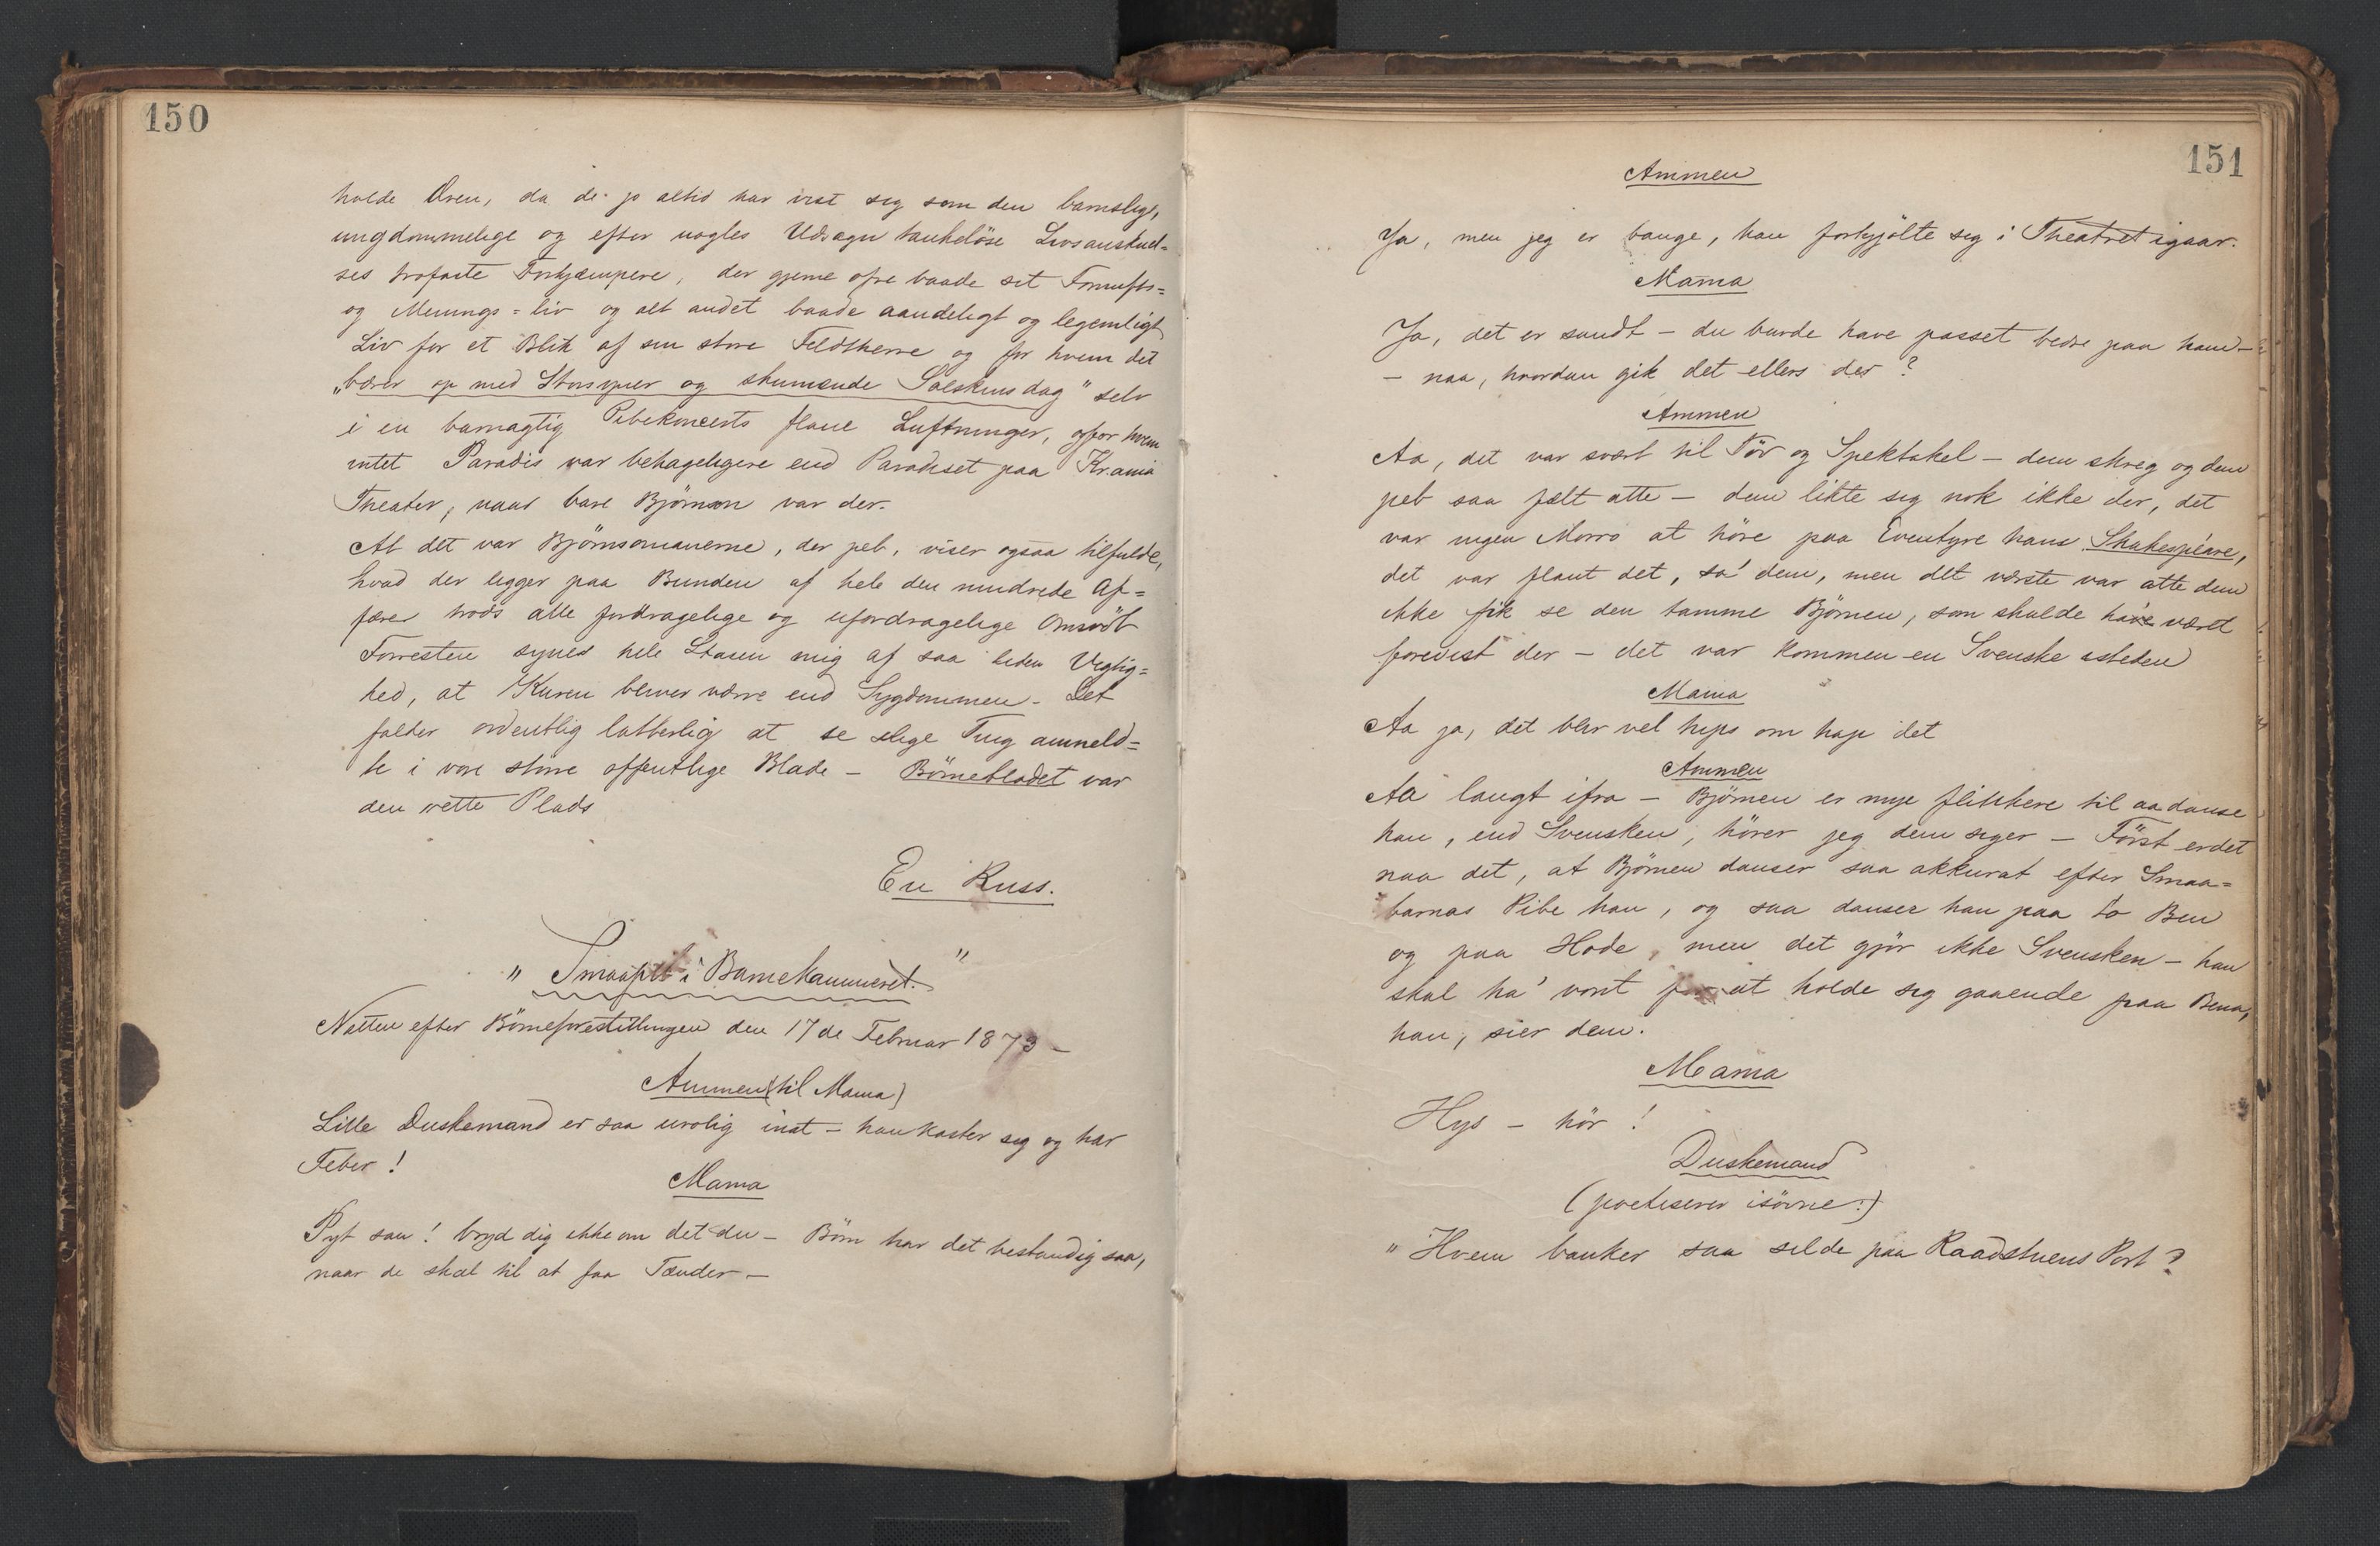 150
holde Øren, da de jo altid har vist seg som den barnslige,
ungdommelige og efter nogles Udsagn tankeløse Livsanskuel=
ses trofaste Forkjæmpere, der gjerne ofre baade sit Fornufts=
og Menings=liv og alt andet baade aandeligt og legemligt
Liv for et Blik af sin store Feldtherre og for hvem det
"bærer op med Storsyner og skumende Solskinsdag" selv
i en barnagtig Pibekoncerts flaue Luftninger, og for hvem
intet Paradis var behageligere end Paradiset paa Kr.ania
Theater, naar bare Bjørnson var der.
At det var Bjørnsomanerne, der peb, viser ogsaa tilfulde,
hvad der ligger paa Bunden af hele den nindrede Af=
færer trods alle fordragelige og ufordragelige Omsvøb
Forresten synes hele Staaen mig af saa liden Vigtig=
hed, at Kuren bliver værre end Sygdommen. Det
falder ordentlig latterlig at se slige Ting anmeld=
te i vore større offentlige Blade – Børnebladet var
den rette Plads
En Russ.
" Smaapib i Barnekammeret. "
Natten efter Børneforestillingen den 17de Februar 1873 –
Ammen (til Mama)
Lille Duskemand er saa urolig inat – han kaster sig og har
Feber!
Mama
Pyt san! bryd dig ikke om det du – Børn har det bestandig saa,
naar de skal til at faa Tænder –
151
Ammen
Ja, men jeg er bange, han forkjølte seg i Theatret igaar.
Mama
Ja, det er sandt – du burde have passet bedre paa ham –
– naa, hvordan gik det ellers der?
Ammen
Aa, det var svært til Tøv og Spektakel – dem skreg og dem
peb saa fælt atte – dem likte seg nok ikke der, det
var ingen Morro at høre paa Eventyre hans Shakespeare,
det var flaut det, sa' dem, men det værste var atte dem
ikke fik se den tamme Bjørnen, som skulde have været
forevist der – det var kommen en Svenske isteden
Mama
Aa ja, det blir vel hips om hap det
Ammen
Aa langt ifra – Bjørnen er mye flinkere til aa danse
han, end Svensken, hører jeg dem siger – Først er det
naa det, at Bjørnen danser saa akkurat efter Smaa=
barnas Pibe han, og saa danser han paa to Ben
og paa Hode, men det gjør ikke Svensken – han
skal ha' vont for at holde sig gaaende paa Bena,
han, sier dem.
Mama
Hys – hør!
Duskemand
(poetiserer isøvne:)
" Hvem banker saa silde paa Raadstuens Port?